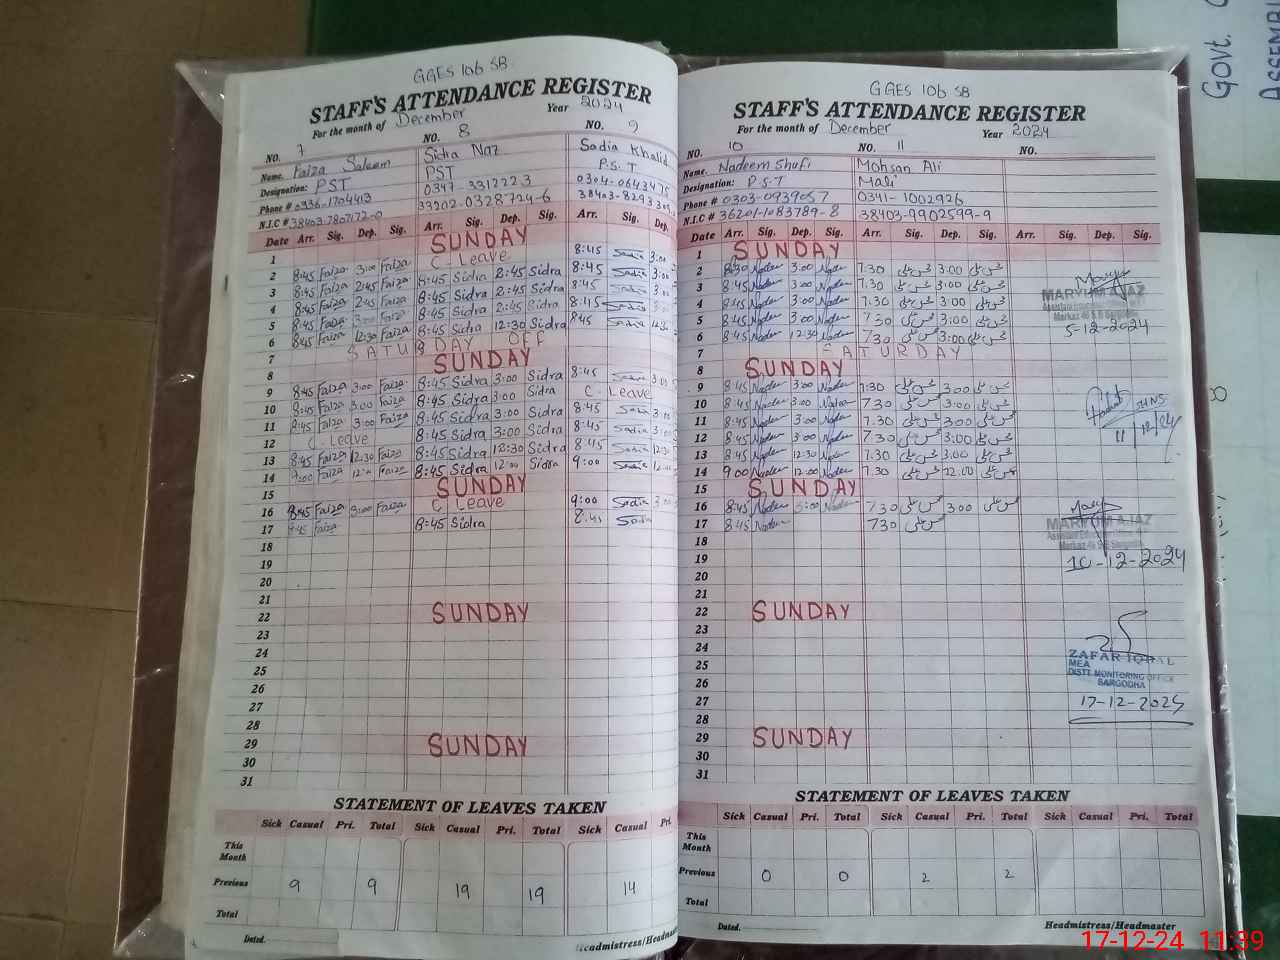 GGES 106 SB
STAFF'S ATTENDANCE REGISTER
For the month of December Year 2024
NO. 7 NO. 8 NO. 9
Name. Faiza Saleem Sidra Naz Sadia Khalid
Designation: PST PST P.S.T
Phone # 0347-3312223
N.I.C # 33202-0328724-6
Date Arr. Sig. Dep. Sig. Arr. Sig. Dep. Sig. Arr. Sig. Dep.
1 SUNDAY
2 8:45 Faiza 3:00 Faiza C. Leave 8:45 Sadia 3:00
3 8:45 Faiza 2:45 Faiza 8:45 Sidra 2:45 Sidra 8:45 Sadia 3:00
4 8:45 Faiza 2:45 Faiza 8:45 Sidra 2:45 Sidra 8:45 Sadia 3:00
5 8:45 Faiza Faiza 8:45 Sidra 2:45 Sidra 8:45 Sadia 3:00
6 8:45 Faiza 12:30 Faiza 8:45 Sidra 12:30 Sidra 8:45 Sadia 12:30
7 SATURDAY OFF
8 SUNDAY
9 8:45 Faiza 3:00 Faiza 8:45 Sidra 3:00 Sidra 8:45 Sadia 3:00
10 8:45 Faiza 3:00 Faiza 8:45 Sidra 3:00 Sidra C. Leave
11 8:45 Faiza 3:00 Faiza 8:45 Sidra 3:00 Sidra 8:45 Sadia 3:00
12 C. Leave 8:45 Sidra 3:00 Sidra 8:45 Sadia 3:00
13 8:45 Faiza 12:30 Faiza 8:45 Sidra 12:30 Sidra 8:45 Sadia 12:30
14 9:00 Faiza 12:00 Faiza 8:45 Sidra 12:00 Sidra 9:00 Sadia
15 SUNDAY
16 8:45 Faiza 3:00 Faiza C Leave 9:00 Sadia 3:00
17 8:45 Faiza 8:45 Sidra 8:45 Sadia
18
19
20
21
22 SUNDAY
23
24
25
26
27
28
29 SUNDAY
30
31
STATEMENT OF LEAVES TAKEN
Sick Casual Pri. Total Sick Casual Pri. Total Sick Casual Pri.
This Month
Previous 9 9 19 19 14
Total
Dated.
GGES 106 SB
STAFF'S ATTENDANCE REGISTER
For the month of December Year 2024
NO. 10 NO. 11 NO.
Name. Nadeem Shufi Mohsan Ali
Designation: P.S.T Mali
Phone # 0303-0939057 0341-1002926
N.I.C # 36201-1083789-8 38403-9902599-9
Date Arr. Sig. Dep. Sig. Arr. Sig. Dep. Sig. Arr. Sig. Dep. Sig.
1 SUNDAY
2 8:30 3:00 7:30 3:00
3 8:45 3:00 7.30 3:00
4 8:45 3:00 7.30 3:00
5 8:45 3:00 7.30 3:00
6 8:45 12:30 7.30 3:00
7 SATURDAY
8 SUNDAY
9 8:45 3:00 7:30 3:00
10 8:45 3:00 7.30 3:00
11 8:45 3:00 7.30 3:00
12 8:45 3:00 7.30 3:00
13 8:45 12:30 7.30 3:00
14 9:00 12:00 7.30 12.00
15 SUNDAY
16 8:45 3:00 7.30 3.00
17 8:45 7.30
18
19
20
21
22 SUNDAY
23
24
25
26
27
28
29 SUNDAY
30
31
MARYUM AJAZ
5-12-2024
11/12/24
MARYUM AJAZ
16-12-2024
ZAFAR IQBAL
MEA
DISTT MONITORING OFFICE
SARGODHA
17-12-2025
STATEMENT OF LEAVES TAKEN
Sick Casual Pri. Total Sick Casual Pri. Total Sick Casual Pri. Total
This Month
Previous 0 0 2 2
Total
Dated. Headmistress/Headmaster
17-12-24 11:39